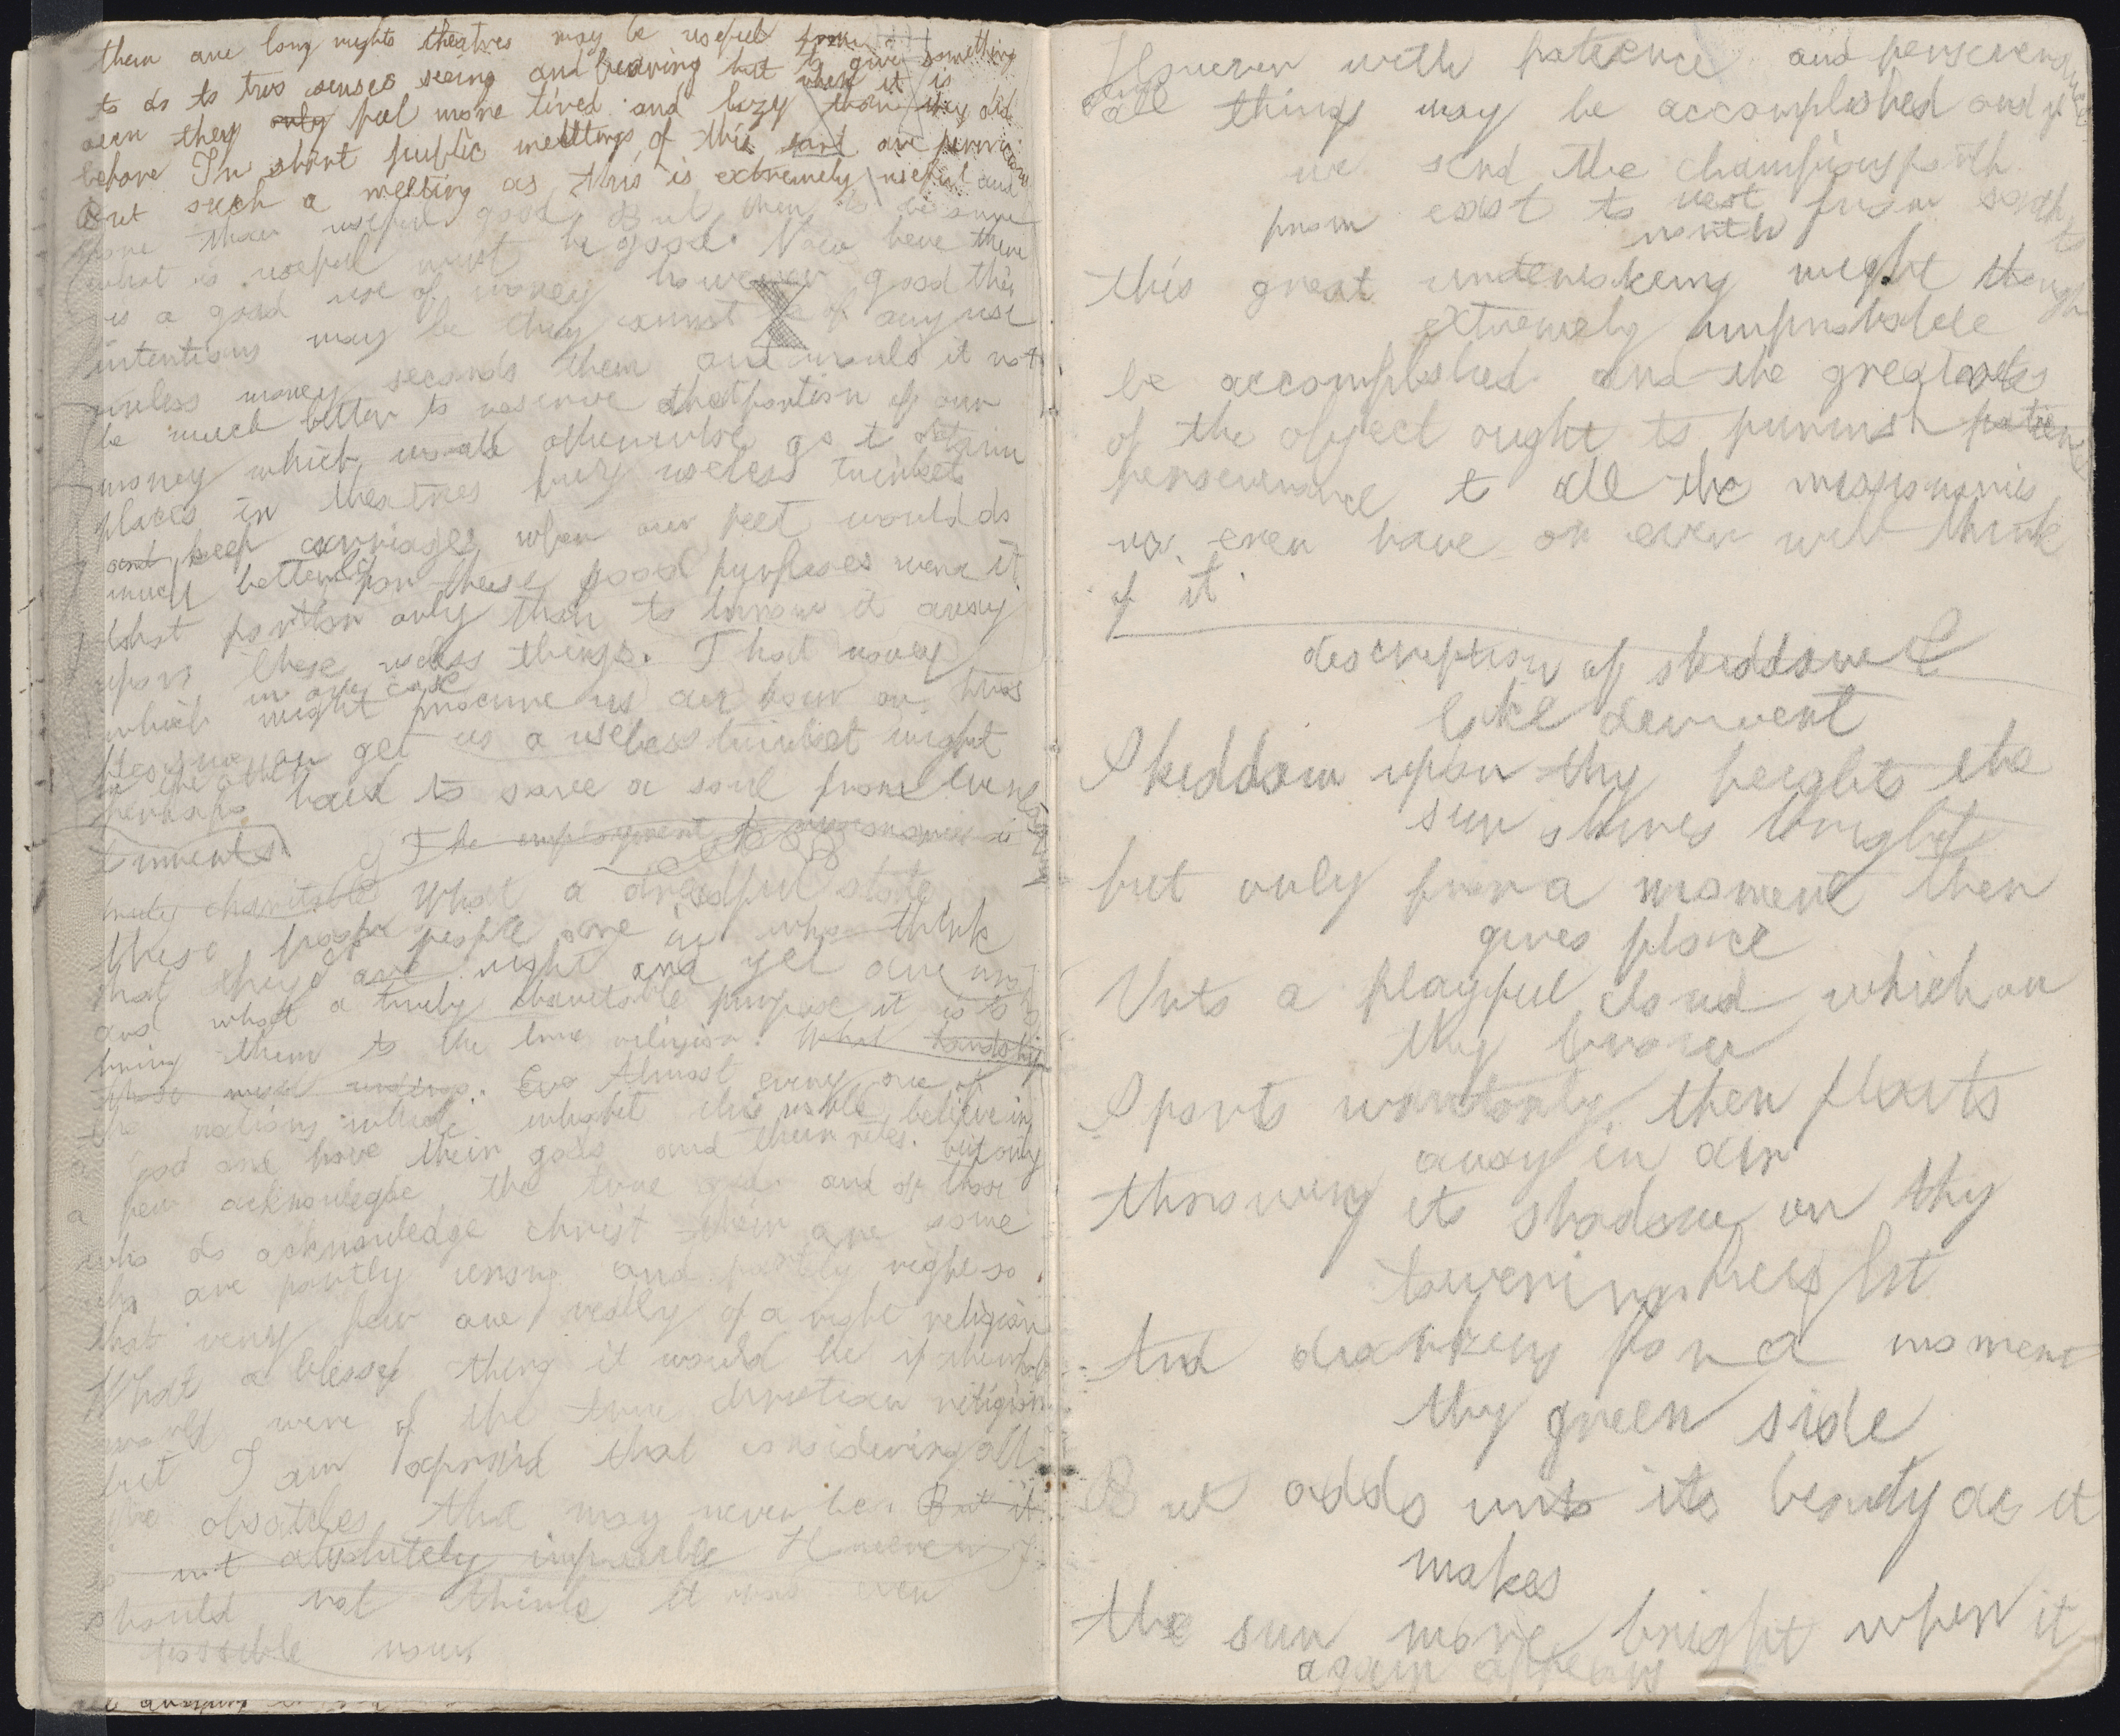 there are long nights theatres may be useful to give something
to do to two senses seeing and hearing but when it is
over they only feel more tired and lazy than they did
before In short public meetings of this sort are
But such a meeting as this is extremely useful and
more than useful good But then to be sure
what is useful must be good. Now here there
is a good use of money however good the
intentions may be they cannot be of any use
unless money seconds them and would it not
be much better to reserve that portion of our
money which would otherwise go to obtain
places in theatres buy useless trinkets
and keep carriages when our feet would do
much better for these good purposes were it
that portion only than to throw it away
upon these useless things. That money
in one case
which might procure us an hour or two
pleasure or get us a useless trinket might
in the other
perhaps have to save a soul from everlasting
torments. The employment of missionaries is
truly charitable What a dreadful state
these poor people are in who think
that they are right and yet are not
and what a truly charitable purpose it is to
bring them to the true religion. What hardships
these must undergo. Almost every one of
the nations which inhabit this world believe in
a God and have their gods and their rites. but only
a few acknowlegde the true god and of those
who do acknowledge christ their are some
who are partly wrong and partly right so
that very few are really of a right religion
What a blessed thing it would be if the whole
world were of the true christian religion
but I am afraid that considering all
the obsatcles that may never be. But it
is not absolutely impossible However I
should not think it was even
possible now
However with patience and perseverance
all things may be accomplished and if
we send the champions forth
from east to west from south to
north
this great undertaking might though
extremely improbable
be accomplished and the greatness
of the object ought to furnish patience
perseverance to all the missionaries
we ever have or ever will think
of it.
description of skiddaw &
lake derwent
Skiddaw upon thy heights the
sun shines bright
but only for a moment then
gives place
Unto a playful cloud which on
thy brow
Sports wantonly then floats
away in air
throwing its shadow on thy
towering height
And darkening for a moment
thy green side
But adds unto its beauty as it
makes
the sun more bright when it
again appears